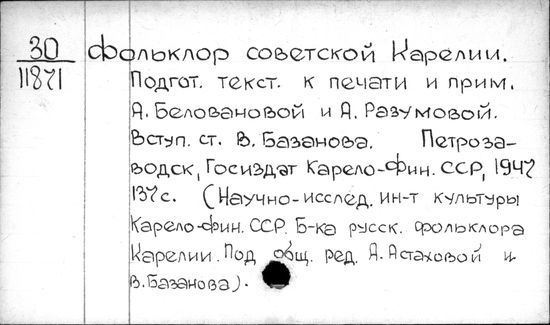 30 Фольклор советской Карелии.
11871 Подгот. текст. к печати и прим.
А. Беловановой и А. Разумовой.
Вступ. ст. В. Базанова. Петроза-
водск, Госиздат Карело-Фин. ССР, 1947
137 с. (Научно-исслед. ин-т культуры
Карело-фин. ССР. Б-ка русск. фольклора
Карелии. Под общ. ред. А. Астаховой и
В. Базанова).